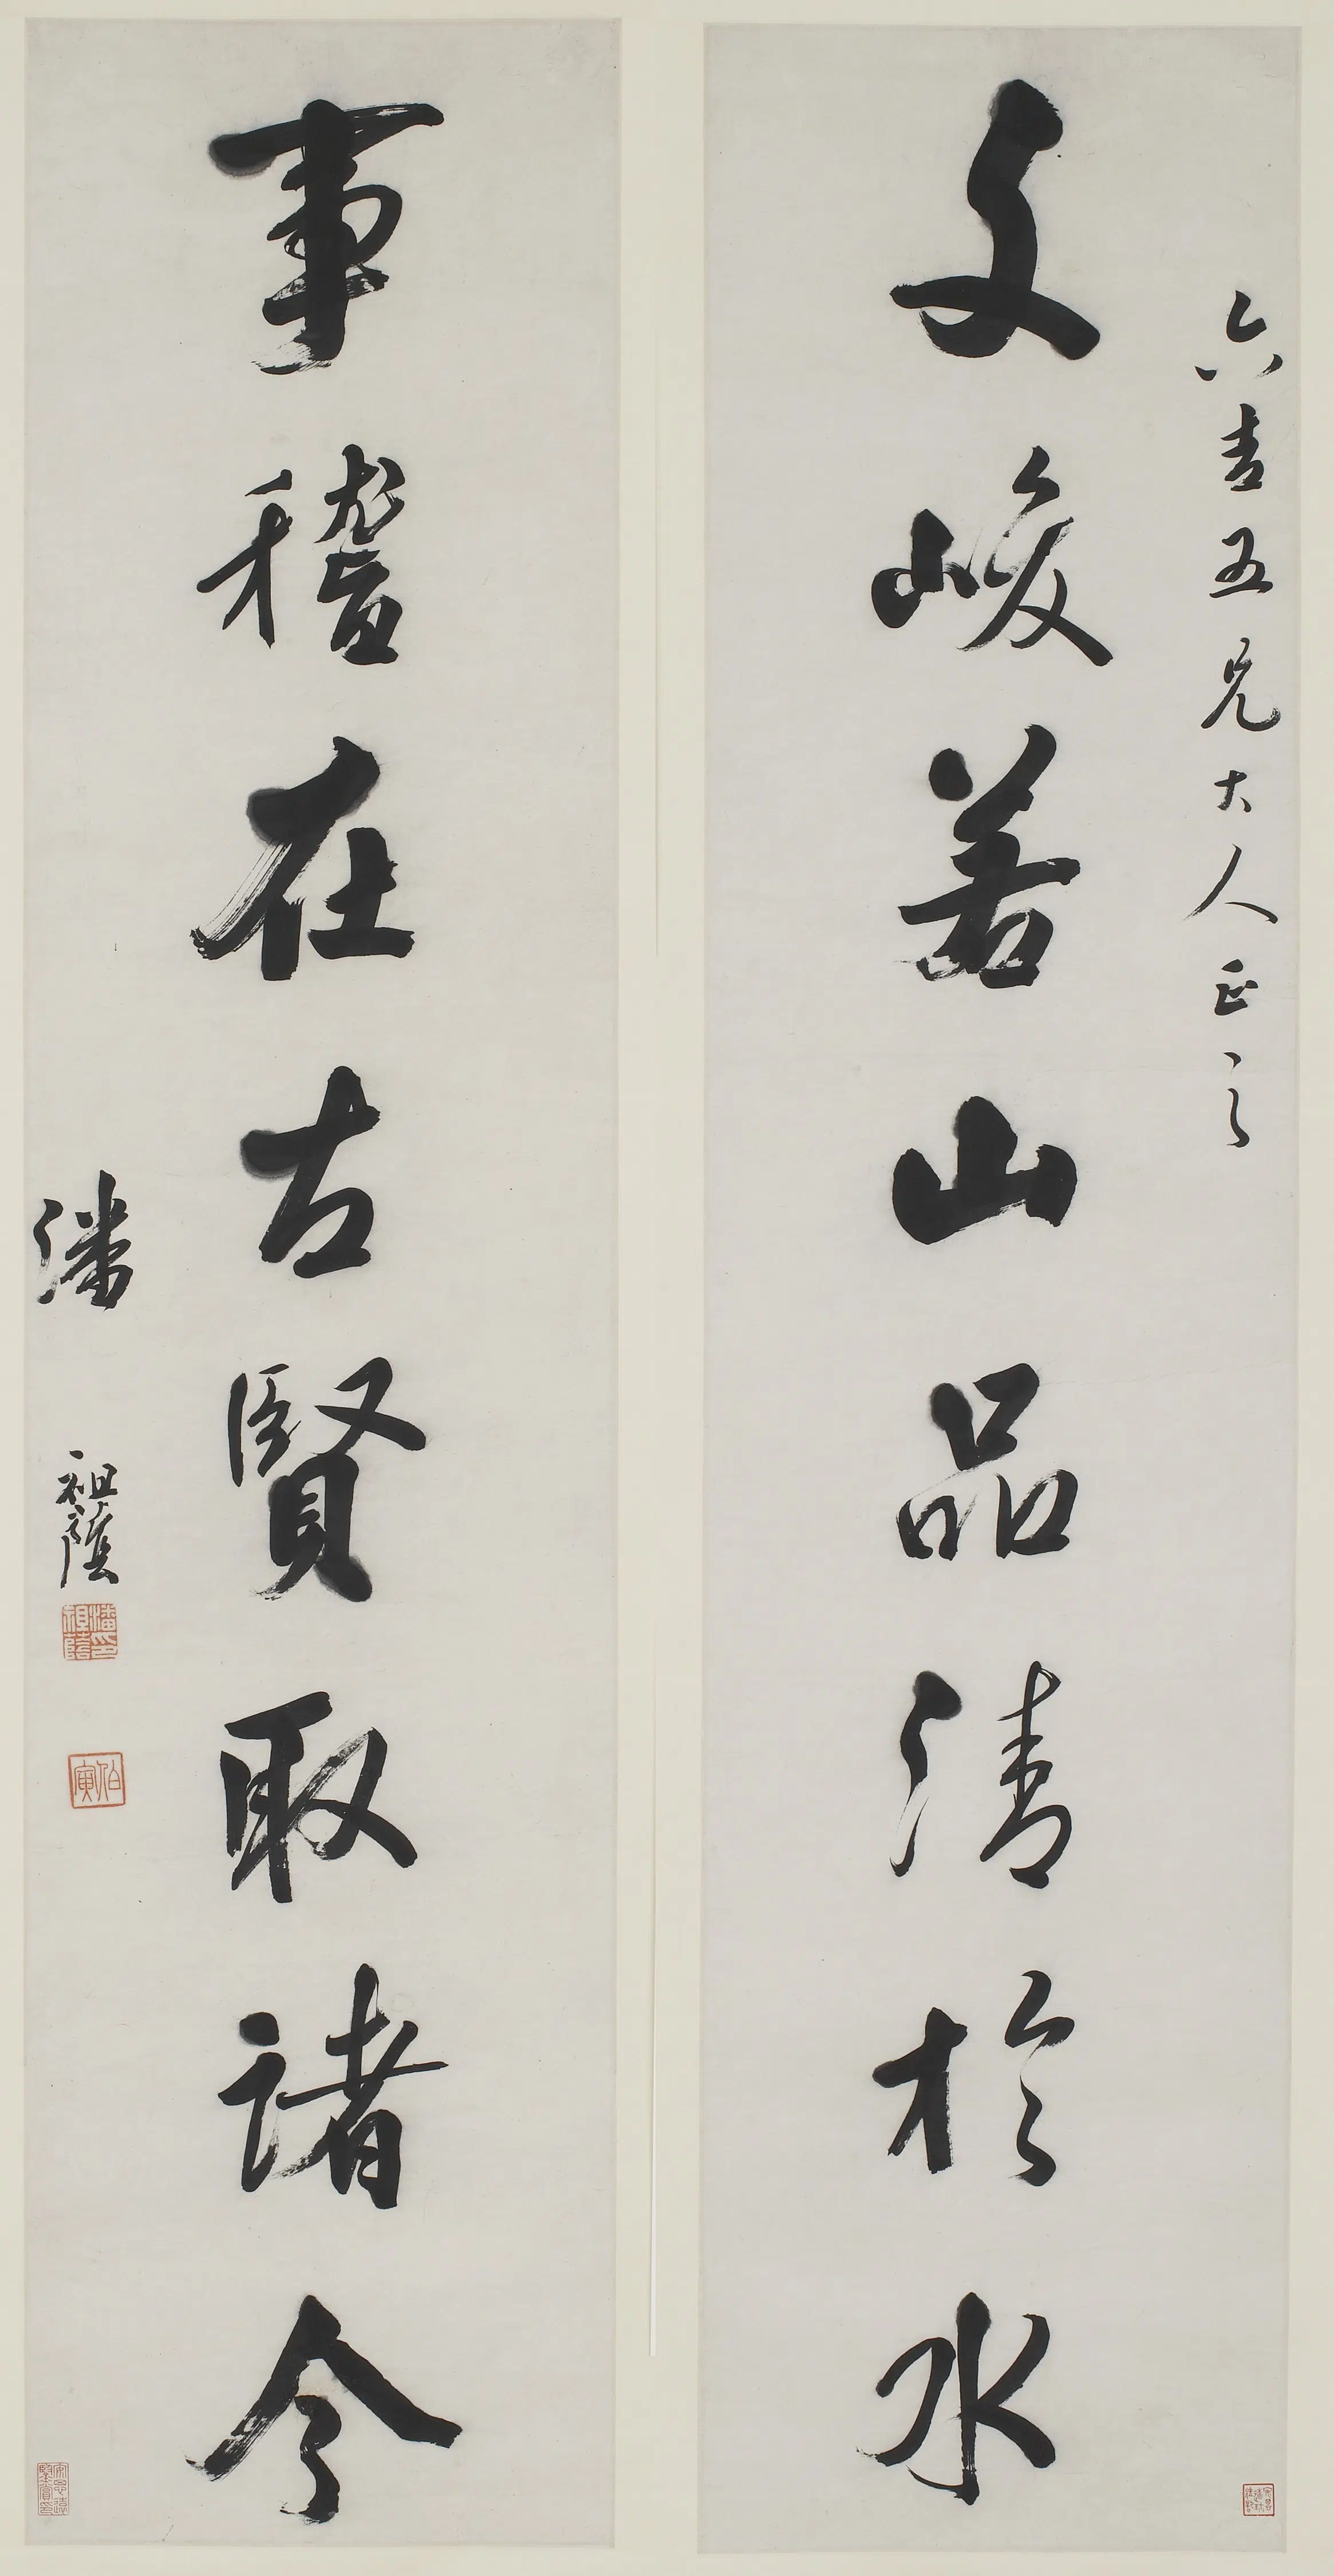 六吉五兄大人正之
文峻若山品清於水
事稽在古賢取諸今
潘祖蔭
潘祖蔭印
伯寅